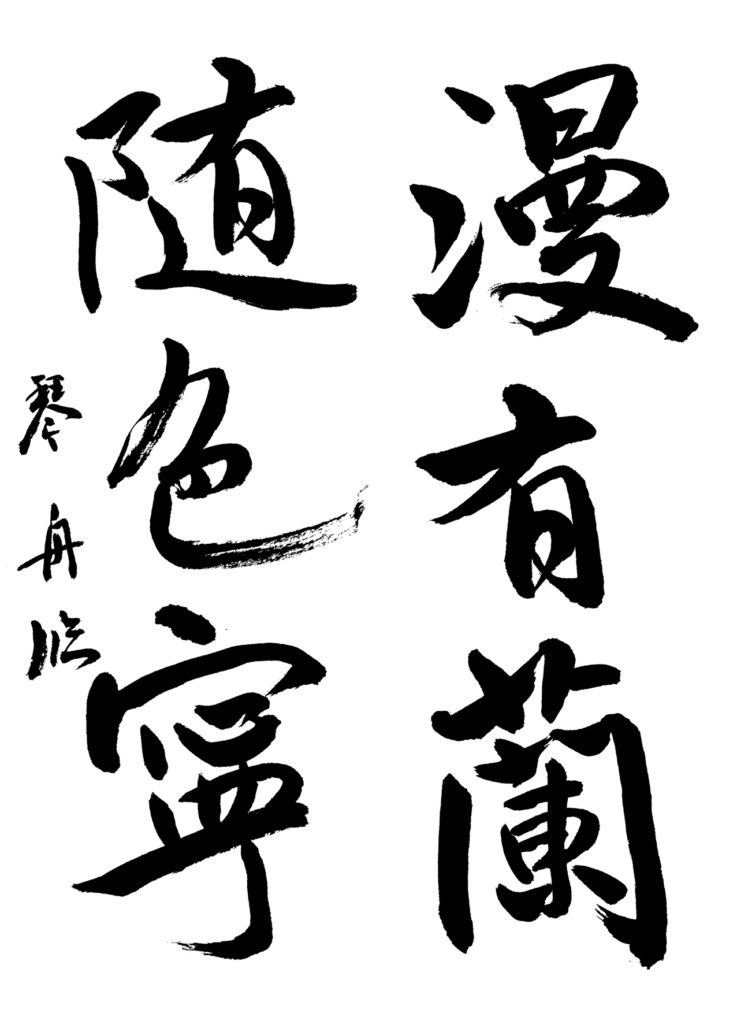 漫有蘭
随色寧
琴舟臨